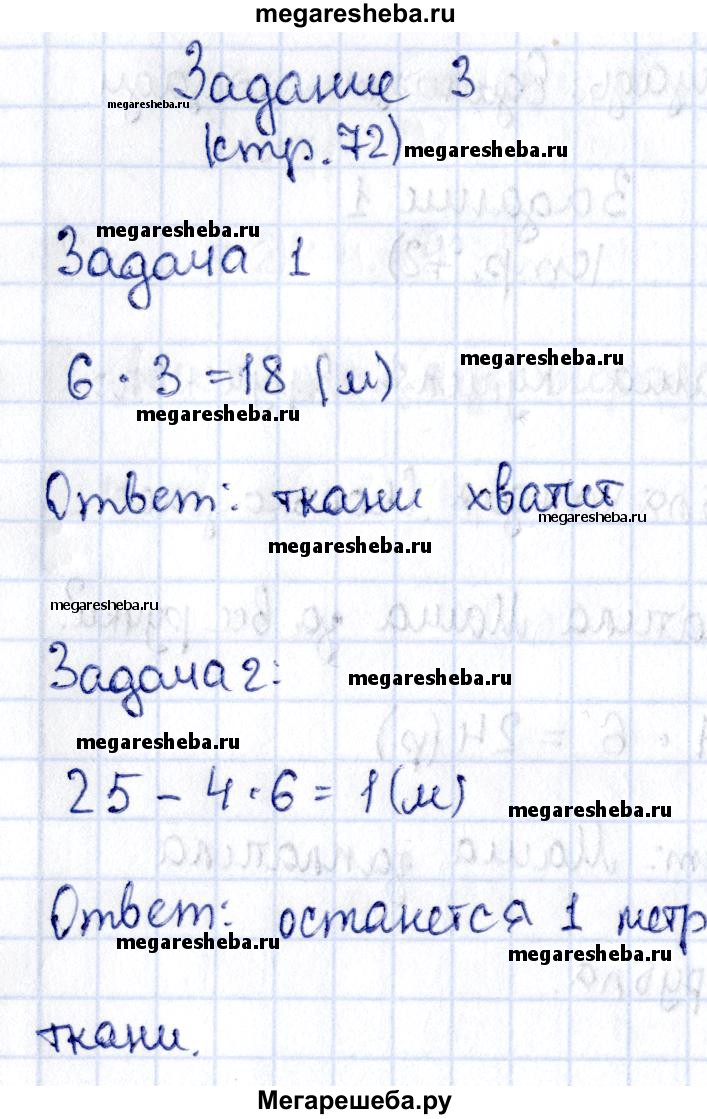 megaresheba.ru
Задание 3
megaresheba.ru
(стр. 72) megaresheba.ru
megaresheba.ru
Задача 1
6 · 3 = 18 (м) megaresheba.ru
megaresheba.ru
Ответ: ткани хватит
megaresheba.ru
megaresheba.ru
megaresheba.ru
Задача 2: megaresheba.ru
megaresheba.ru
25 - 4 · 6 = 1 (м) megaresheba.ru
Ответ: останется 1 метр
megaresheba.ru
megaresheba.ru
ткани.
Мегарешеба.ру